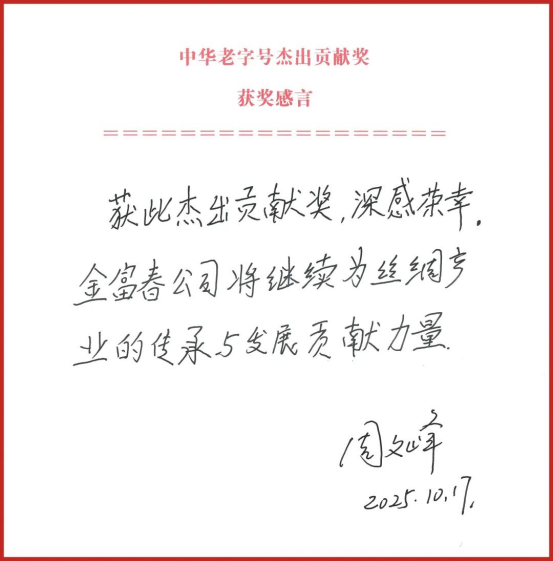 中华老字号杰出贡献奖
获奖感言
==================
获此杰出贡献奖,深感荣幸.
金富春公司将继续为丝绸产
业的传承与发展贡献力量.
周文峰
2025.10.17.